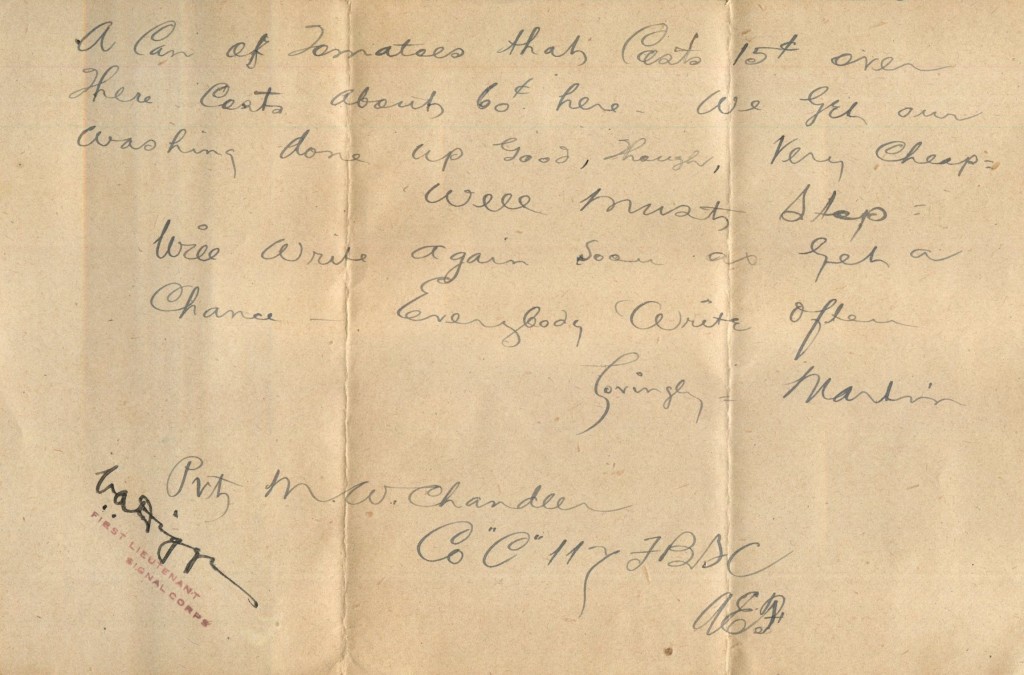 A Can of Tomatoes that Costs 15¢ over
There Costs about 60¢ here - We Get our
Washing done up Good, Though, Very Cheap=
Well Must Stop =
Will Write again Soon as Get a
Chance - Everybody Write Often
Lovingly = Martin
Pvt M. W. Chandler
Co "C" 117 F B S C
AEF
FIRST LIEUTENANT
SIGNAL CORPS